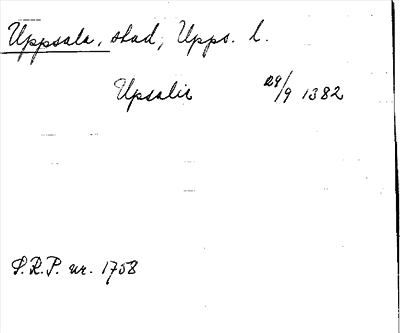 Uppsala, stad, Upps. l.
Upsalis 29/9 1382
S.R.P. nr. 1758